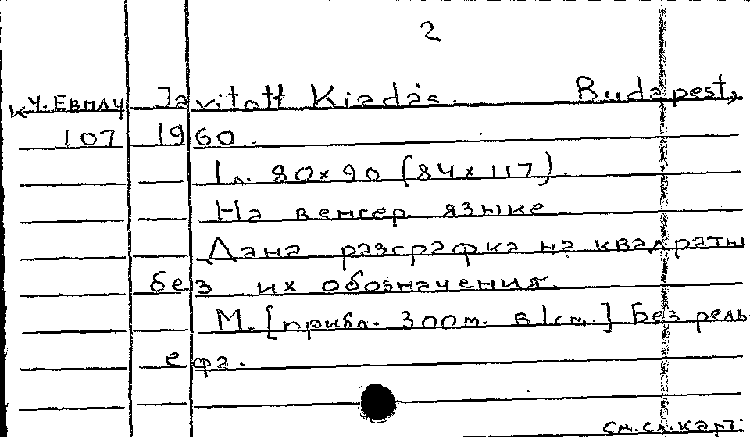 2
К4.Евп/14 Javitott Kiadás. Budapest,
107 1960.
1 л. 80x90 (84x117).
На венгер. языке
Дана разграфка на квадраты
без их обозначения.
М. [прибл. 300м. в 1см.] Без рель-
ефа.
см. сл. карт.